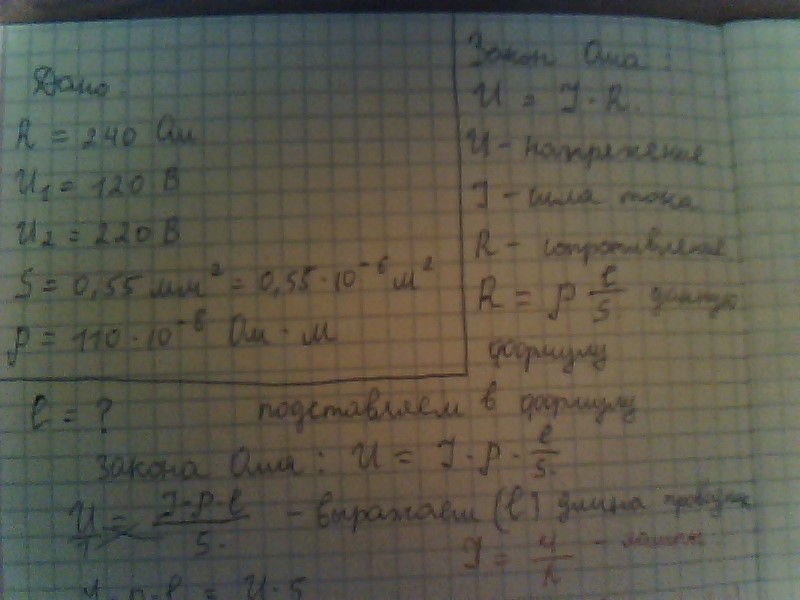 Дано:
R = 240 Ом
U₁ = 120 В
U₂ = 220 В
S = 0,55 мм² = 0,55·10⁻⁶ м²
ρ = 110·10⁻⁸ Ом · м
l = ?
Закон Ома:
U = I · R.
U – напряжение
I – сила тока
R – сопротивление
R = ρ l/S данную
формулу
подставляем в формулу
закона Ома: U = I · ρ · l/S.
U/1 = I·ρ·l/S. – выражаем (l) длина
I = U/R
I·ρ·l = U·S